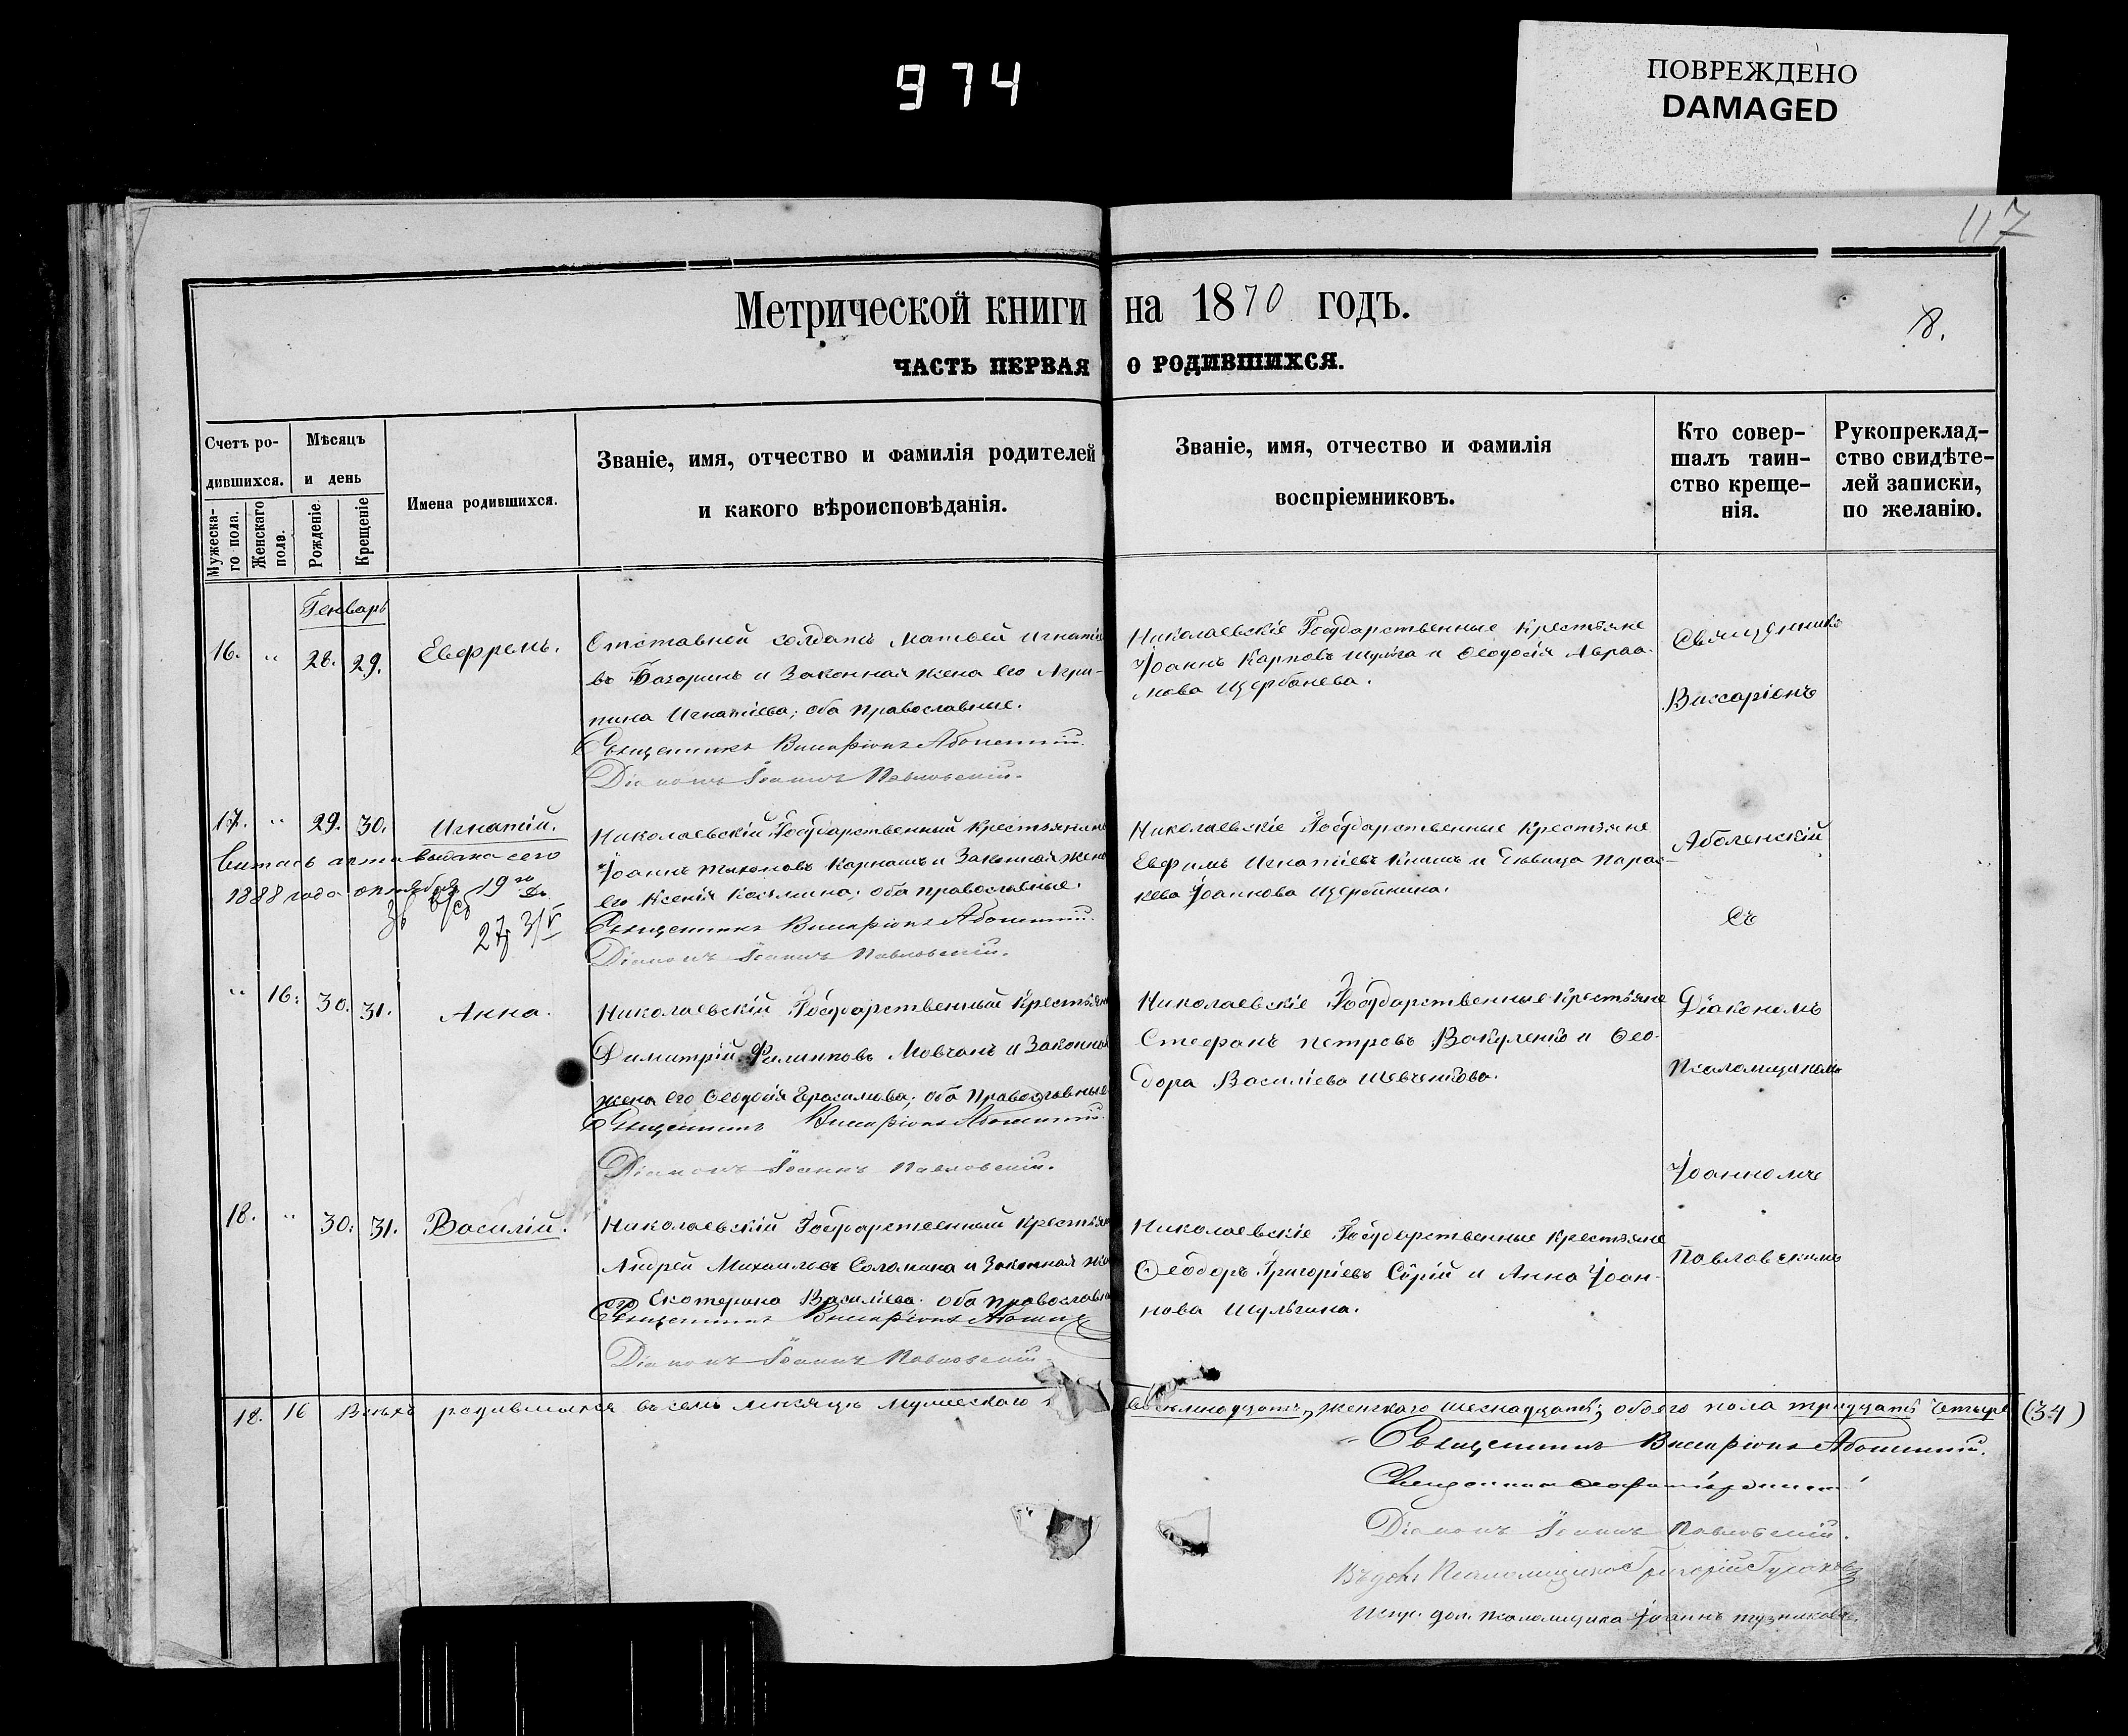 974
ПОВРЕЖДЕНО
DAMAGED
117
Метрической книги на 1870 годъ.
8.
ЧАСТЬ ПЕРВАЯ О РОДИВШИХСЯ.
Счетъ ро-
дившихся.
Мужеска-
го пола.
Женскаго
пола.
Мѣсяцъ
и день
Рожденіе.
Крещеніе
Имена родившихся.
Званіе, имя, отчество и фамилія родителей
и какого вѣроисповѣданія.
Званіе, имя, отчество и фамилія
воспріемниковъ.
Кто совер-
шалъ таин-
ство креще-
нія.
Рукопреклад-
ство свидѣте-
лей записки,
по желанію.
Генварь
16. " 28. 29. Ефремъ.
Отставной солдатъ Матвей Игнатіе
въ и Законная жена его Агри-
пина Игнатіева; оба православные.
Священникъ Виссаріонъ Аболенскій.
Діаконъ Іоаннъ Павловскій.
Николаевскіе Государственные Крестьяне
Іоаннъ Карповъ Шульга и Ѳеодосія Авраа-
мова Щербанева.
Священникъ
Виссаріонъ
17. " 29. 30. Игнатій.
выдана сего
1888 года октября 19го
27 3/V
Николаевскій Государственный Крестьянинъ
Іоаннъ Тихоновъ Карнашъ и Законная жена
его Ксенія; оба православные.
Священникъ Виссаріонъ Аболенскій.
Діаконъ Іоаннъ Павловскій.
Николаевскіе Государственные Крестьяне
Ефимъ Игнатіевъ и Дѣвица Парас-
кева Іоаннова Щербинина.
Аболенскій
Съ
" 16. 30. 31. Анна.
Николаевскій Государственный Крестьян
Димитрій Филиповъ Мовчанъ и Законная
жена его Ѳеодосія Герасимова; оба православные
Священникъ Виссаріонъ Аболенскій.
Діаконъ Іоаннъ Павловскій.
Николаевскіе Государственные Крестьяне
Стефанъ Петровъ Вакуленко и Ѳео-
дора Василіева Шевченкова.
Діакономъ
Псаломщикомъ
Іоанномъ
18. " 30. 31. Василій.
Николаевскій Государственный Крестьян
Андрей Михаиловъ Соломаха и Законная же
его Екатерина Василіева. оба православн
Священникъ Виссаріонъ
Діаконъ Іоаннъ Павловскій.
Николаевскіе Государственные Крестьяне
Ѳеодоръ Григоріевъ Сѣрій и Анна Іоан-
нова Шульгина.
Павловскимъ
18. 16 Всѣхъ родившихся въ семъ мѣсяцѣ мужескаго восемнадцать, женскаго шеснадцать; обоего пола тридцать четыре (34)
Священникъ Виссаріонъ Аболенскій.
Священникъ
Діаконъ Іоаннъ Павловскій.
Псаломщика Григорій
Испр. дол. псаломщика Іоаннъ